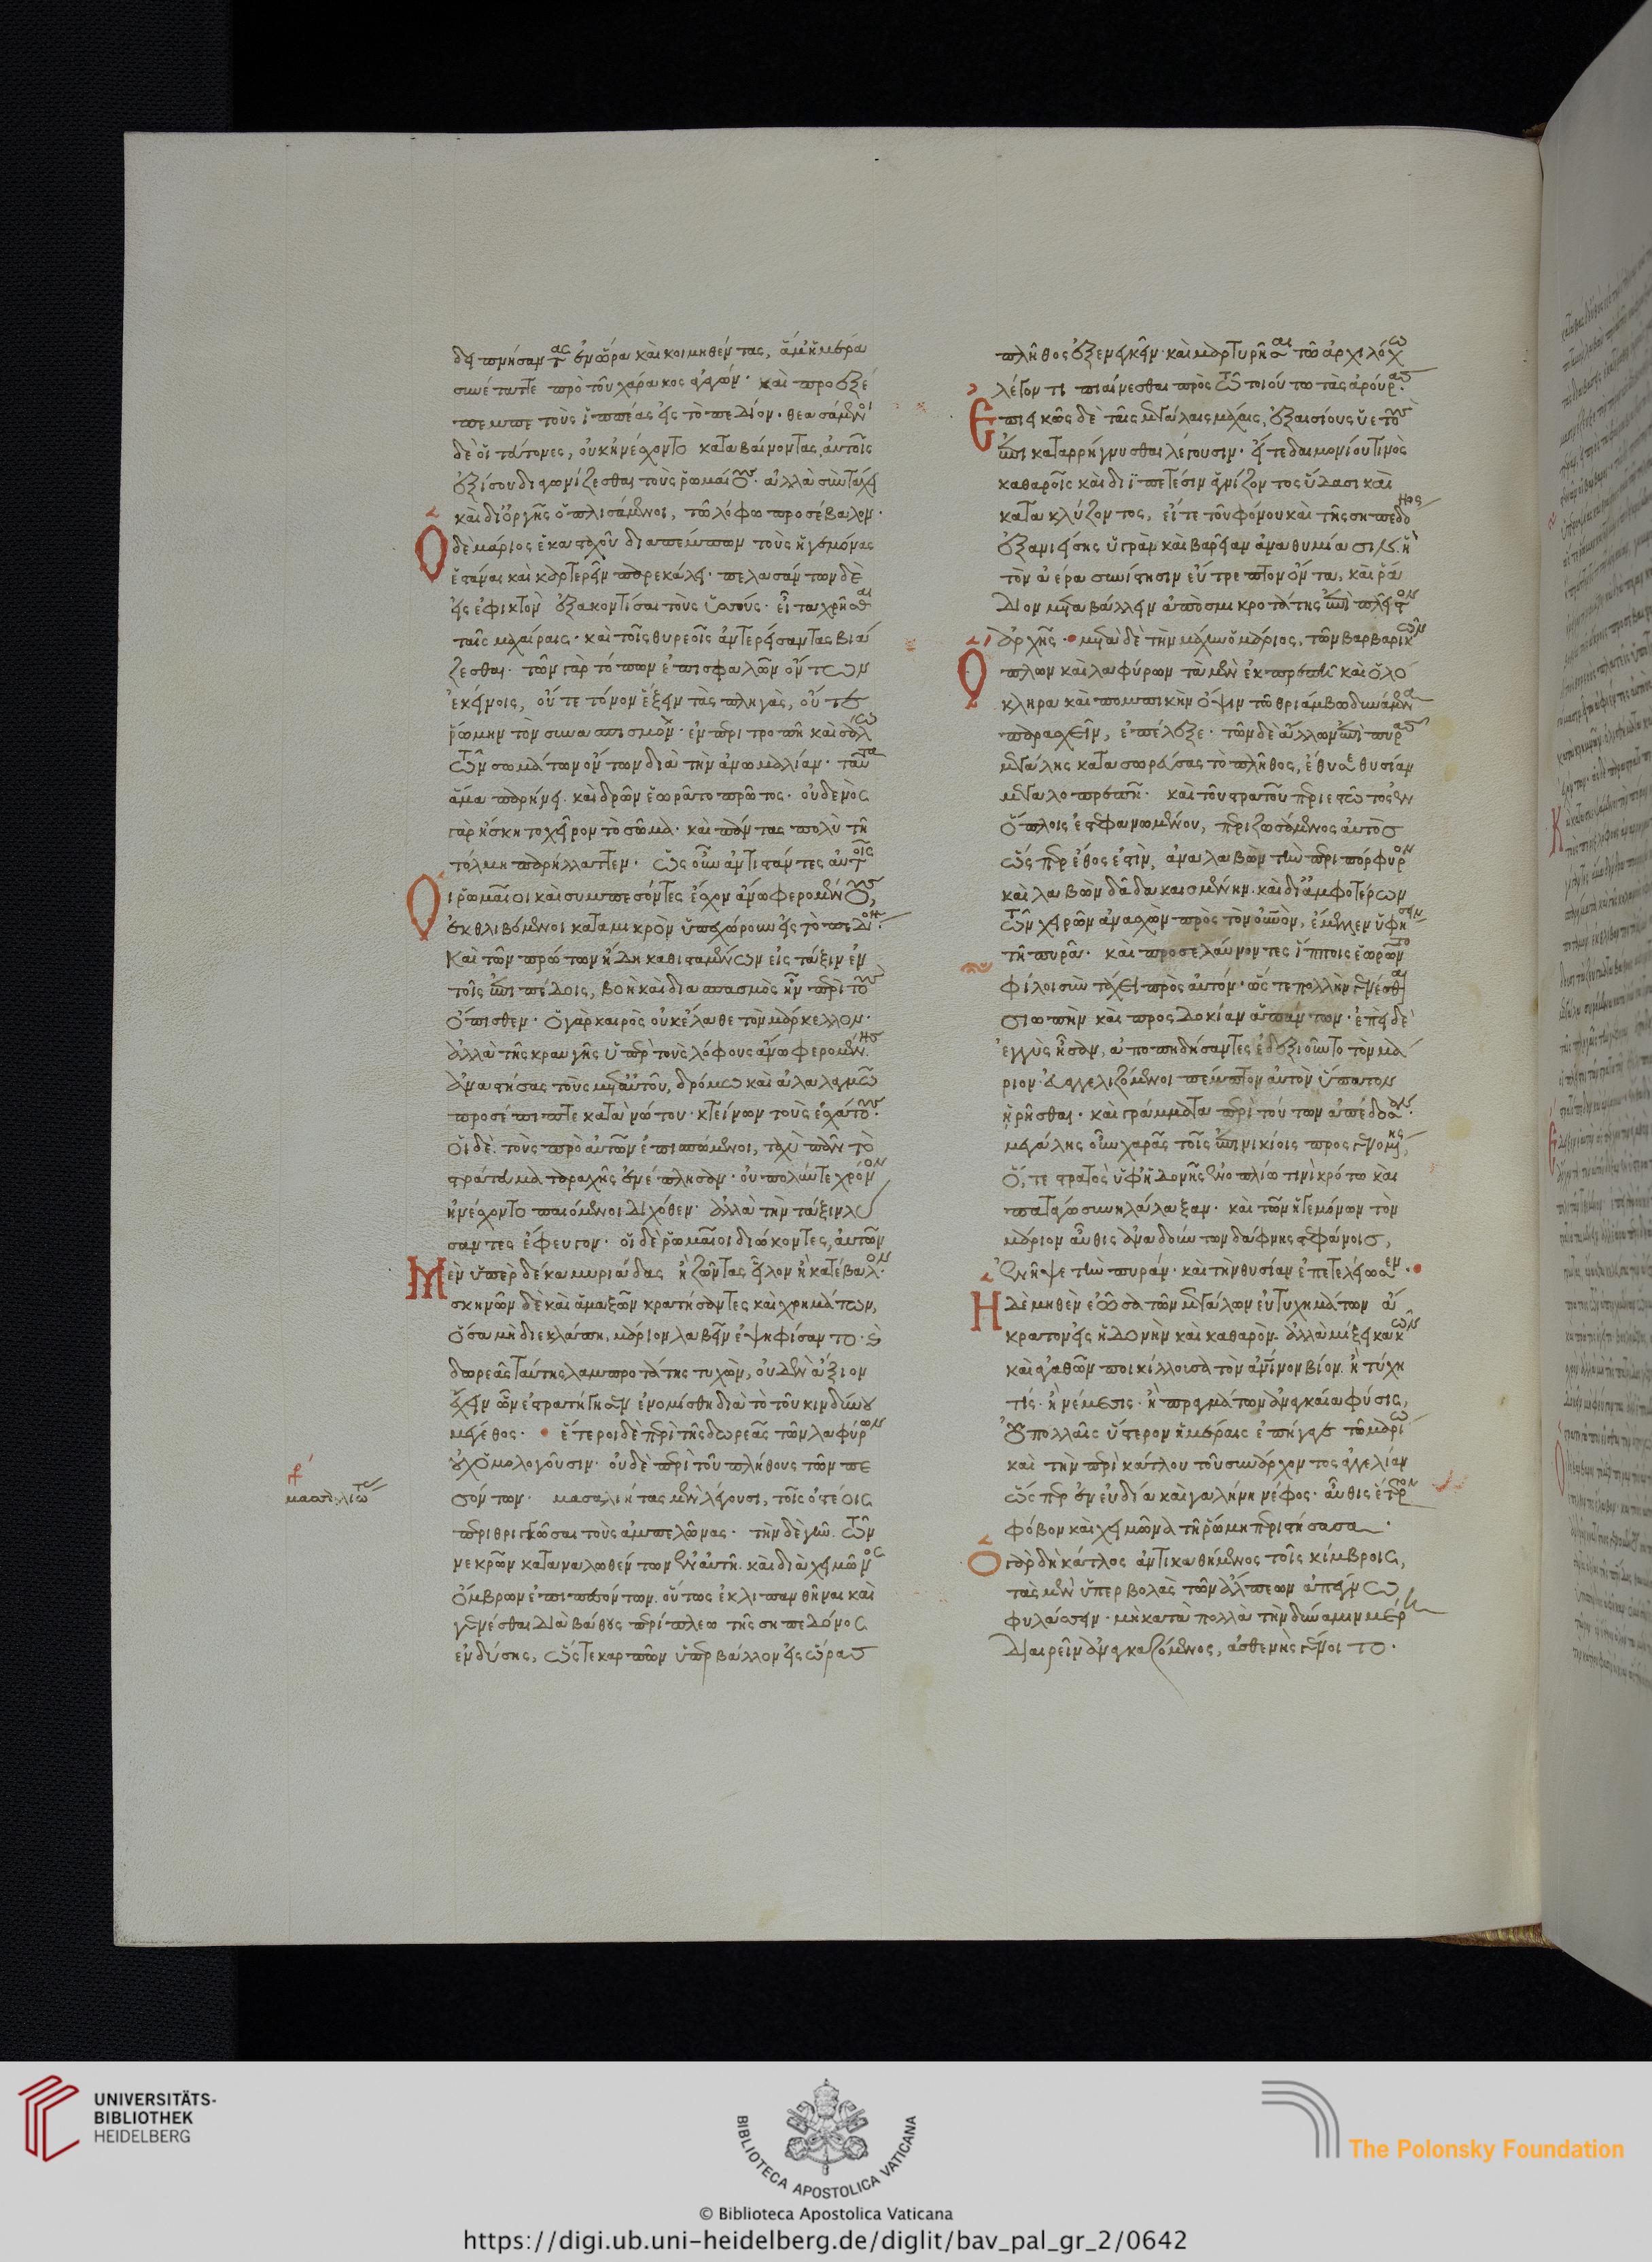 δειπνήσαντας ἐν ὥρα καὶ κοιμηθέντας, ἅμ' ἡμέρα
συνέταττε πρὸ τοῦ χάρακος ἀγαγών· καὶ προεξέ
πεμπε τοὺς ἱππέας εἰς τὸ πεδίον· θεασάμενοι
δὲ οἱ τεύτονες, οὐκ ἠνέσχοντο καταβαίνοντας αὐτοῖς
ἐξίσου διαγωνίζεσθαι τοὺς ῥωμαίους· ἀλλὰ σὺν τάχει
καὶ δι' ὀργῆς ὁπλισάμενοι, τῶ λόφω προσέβαλον·
Ὁ δὲ μάριος ἑκασταχοῦ διαπέμπων τοὺς ἡγεμόνας
ἑστάναι καὶ καρτερεῖν παρεκάλει· πελασάντων δὲ
εἰς ἐφικτὸν ἐξακοντίσαι τοὺς ὑσσούς· εἶτα χρῆσθαι
ταῖς μαχαίραις· καὶ τοῖς θυρεοῖς ἀντερείσαντας βιά
ζεσθαι· τῶν γὰρ τόπων ἐπισφαλῶν ὄντων
ἐκείνοις, οὔτε τόνον ἕξειν τὰς πληγὰς, οὔτε
ῥώμην τὸν συνασπισμόν· ἐν περιτροπῆ καὶ σάλω
τῶν σωμάτων ὄντων διὰ τὴν ἀνωμαλίαν· ταῦτα
ἅμα παρήνει· καὶ δρῶν ἑωρᾶτο πρῶτος· οὐδενὸς
γὰρ ἤσκητο χεῖρον τὸ σῶμα· καὶ πάντας πολὺ τῆ
τόλμη παρήλλαττεν· ὡς οὖν ἀντιστάντες αὐτοῖς
Οἱ ῥωμαῖοι καὶ συμπεσόντες ἔσχον ἄνω φερομένους,
ἐκθλιβόμενοι κατα μικρὸν ὑπεχώρουν εἰς τὸ πεδίον·
Καὶ τῶν πρώτων ἤδη καθισταμένων εἰς τάξιν ἐν
τοῖς ἐπιπέδοις, βοὴ καὶ διασπασμὸς ἦν περὶ τοὺς
ὄπισθεν· ὁ γὰρ καιρὸς οὐκ ἔλαθε τὸν μάρκελλον·
ἀλλὰ τῆς κραυγῆς ὑπὲρ τοὺς λόφους ἄνω φερομένης·
ἀναστήσας τοὺς μεθ' αὑτοῦ, δρόμω καὶ ἀλαλαγμῶ
προσέπιπτε κατὰ νώτου· κτείνων τοὺς ἐσχάτους·
Οἱ δὲ τοὺς πρὸ αὐτῶν ἐπισπώμενοι, ταχὺ πᾶν τὸ
στράτευμα ταραχῆς ἐνέπλησαν· οὐ πολύν τε χρόνον
ἠνέσχοντο παιόμενοι διχόθεν· ἀλλὰ τὴν τάξιν λύ
σαντες ἔφευγον· οἱ δὲ ῥωμαῖοι διώκοντες, αὐτῶν
Μὲν ὑπὲρ δέκα μυριάδας ἢ ζῶντας εἷλον ἢ κατέβαλον·
σκηνῶν δὲ καὶ ἁμαξῶν κρατήσαντες καὶ χρημάτων,
ὅσα μὴ διεκλάπη, μάριον λαβεῖν ἐψηφίσαντο· καὶ
δωρεᾶς ταύτης λαμπροτάτης τυχὼν, οὐδὲν ἄξιον
ἔχειν ὧν ἐστρατήγησεν ἐνομίσθη διὰ τὸ τοῦ κινδύνου
μέγεθος· ἕτεροι δὲ περὶ τῆς δωρεᾶς τῶν λαφύρων
οὐχ ὁμολογοῦσιν· οὐδὲ περὶ τοῦ πλήθους τῶν πε
σόντων· μασαλιήτας μὲν λέγουσι, τοῖς ὀστέοις
περιθριγκῶσαι τοὺς ἀμπελῶνας· τὴν δὲ γῆν τῶν
νεκρῶν καταναλωθέντων ἐν αὐτῆ· καὶ διὰ χειμῶνος
ὄμβρων ἐπιπεσόντων· οὕτως ἐκλιπανθῆναι καὶ
γενέσθαι διὰ βάθους περίπλεω τῆς σηπεδόνος
ἐνδύσης, ὥστε καρπῶν ὑπερβάλλον εἰς ὥρας
πλῆθος ἐξενεγκεῖν· καὶ μαρτυρῆσαι τῶ ἀρχιλόχω
λέγοντι πιαίνεσθαι πρὸς τοῦ τοιούτου τὰς ἀρούρας·
Ἐπιεικῶς δὲ ταῖς μεγάλαις μάχαις, ἐξαισίους ὑετοὺς
ἐπικαταρρήγνυσθαι λέγουσιν· εἴτε δαιμονίου τινὸς
καθαροῖς καὶ διϊπετέσιν ἁγνίζοντος ὕδασι καὶ
κατακλύζοντος, εἴτε τοῦ φόνου καὶ τῆς σηπεδόνος
ἐξανιείσης ὑγρὰν καὶ βαρεῖαν ἀναθυμίασιν· ἣ
τὸν ἀέρα συνίστησιν εὔτρεπτον ὄντα, καὶ ῥά
διον μεταβάλλειν ἀπὸ σμικροτάτης ἐπὶ πλεῖστον
ἀρχῆς· μετὰ δὲ τὴν μάχην ὁ μάριος, τῶν βαρβαρικῶν
Ὅπλων καὶ λαφύρων τὰ μὲν ἐκπρεπῆ καὶ ὁλό
κληρα καὶ πομπικὴν ὄψιν τῶ θριάμβω δυνάμενα
παρασχεῖν, ἐπέλεξε· τῶν δὲ ἄλλων ἐπὶ πυρᾶς
μεγάλης κατασωρεύσας τὸ πλῆθος, ἔθυσε θυσίαν
μεγαλοπρεπῆ· καὶ τοῦ στρατοῦ περιεστῶτος ἐν
ὅπλοις ἐστεφανωμένου, περιζωσάμενος αὐτὸς
ὥσπερ ἔθος ἐστὶν, ἀναλαβὼν τὴν περιπόρφυρον
καὶ λαβὼν δᾶδα καιομένην· καὶ δι' ἀμφοτέρων
τῶν χειρῶν ἀνασχὼν πρὸς τὸν οὐρανὸν, ἔμελλεν ὑφήσειν
τῆ πυρᾶ· καὶ προσελαύνοντες ἵπποις ἑωρῶντο
φίλοι σὺν τάχει πρὸς αὐτόν· ὥστε πολλὴν γενέσθαι
σιωπὴν καὶ προσδοκίαν ἁπάντων· ἐπεὶ δὲ
ἐγγὺς ἦσαν, ἀποπηδήσαντες ἐδεξιοῦντο τὸν μά
ριον· εὐαγγελιζόμενοι πέμπτον αὐτὸν ὕπατον
ἡρῆσθαι· καὶ γράμματα περὶ τούτων ἀπέδοσαν·
μεγάλης οὖν χαρᾶς τοῖς ἐπινικίοις προσγενομένης,
ὅ, τε στρατὸς ὑφ' ἡδονῆς ἐνοπλίω τινὶ κρότω καὶ
παταγώ συνηλάλαξαν· καὶ τῶν ἡγεμόνων τὸν
μάριον αὖθις ἀναδούντων δάφνης στεφάνοις,
ἐνῆψε τὴν πυράν· καὶ τὴν θυσίαν ἐπετελείωσεν·
Ἡ δὲ μηθὲν ἐῶσα τῶν μεγάλων εὐτυχημάτων ἄ
κρατον εἰς ἡδονὴν καὶ καθαρὸν· ἀλλὰ μίξει κακῶν
καὶ ἀγαθῶν ποικίλλουσα τὸν ἀνθρώπινον βίον· ἢ τύχη
τίς· ἢ νέμεσις· ἢ πραγμάτων ἀναγκαία φύσις,
οὐ πολλαῖς ὕστερον ἡμέραις ἐπήγαγε τῶ μαρίω
καὶ τὴν περὶ κάτλου τοῦ συνάρχοντος ἀγγελίαν
ὥσπερ ἐν εὐδία καὶ γαλήνη νέφος· αὖθις ἕτερον
φόβον καὶ χειμῶνα τῆ ῥώμη περιστήσασα·
Ὁ γὰρ δὴ κάτλος ἀντικαθήμενος τοῖς κίμβροις,
τὰς μὲν ὑπερβολὰς τῶν ἄλπεων ἀπέγνω
φυλάσσειν· μὴ κατὰ πολλὰ τὴν δύναμιν μέρη
διαιρεῖν ἀναγκαζόμενος, ἀσθενὴς γένοιτο·
UNIVERSITÄTS-
BIBLIOTHEK
HEIDELBERG
BIBLIOTECA APOSTOLICA VATICANA
The Polonsky Foundation
© Biblioteca Apostolica Vaticana
https://digi.ub.uni-heidelberg.de/diglit/bav_pal_gr_2/0642